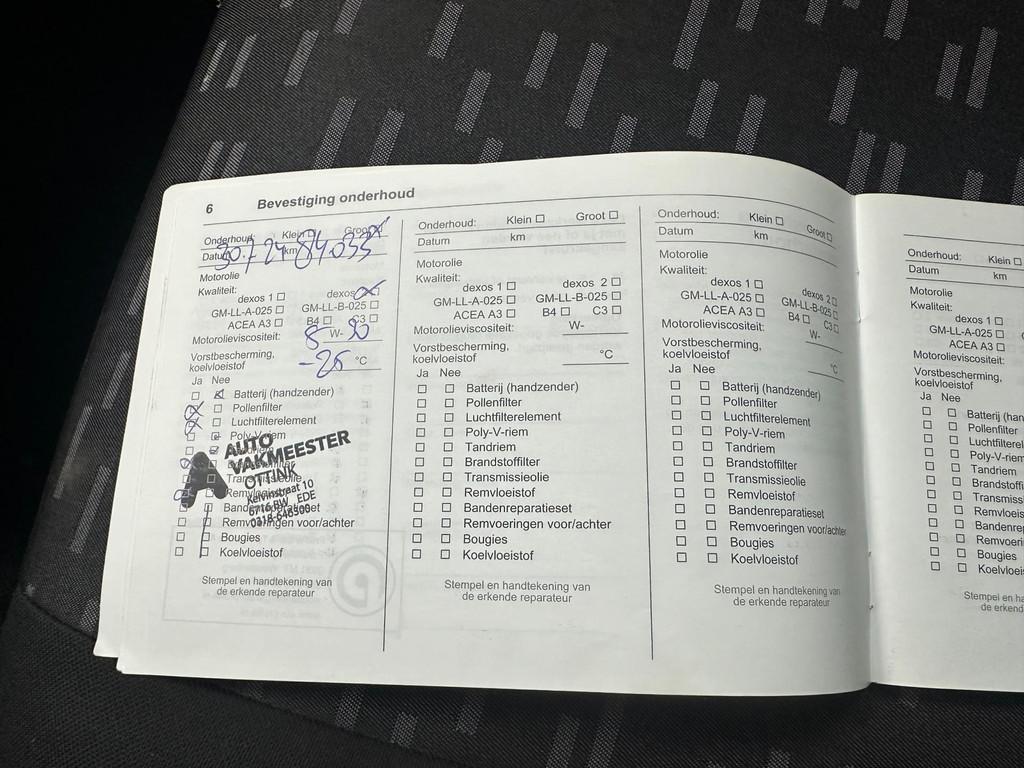 6 Bevestiging onderhoud
Onderhoud: Klein Groot
Datum km
30-7-24 84.033
Motorolie
Kwaliteit:
dexos 1 dexos
GM-LL-A-025 GM-LL-B-025
ACEA A3 B4 C3
Motorolieviscositeit: W-
Vorstbescherming,
koelvloeistof -26 °C
Ja Nee
Batterij (handzender)
Pollenfilter
Luchtfilterelement
Poly-V-riem
Transmissieolie
Remvloeistof
Bandenreparatieset
Remvoeringen voor/achter
Bougies
Koelvloeistof
AUTO
VAKMEESTER
OTTINK
Kelvinstraat 10
6716 BW EDE
0318-640300
Stempel en handtekening van
de erkende reparateur
Onderhoud: Klein Groot
Datum km
Motorolie
Kwaliteit:
dexos 1 dexos 2
GM-LL-A-025 GM-LL-B-025
ACEA A3 B4 C3
Motorolieviscositeit: W-
Vorstbescherming,
koelvloeistof °C
Ja Nee
Batterij (handzender)
Pollenfilter
Luchtfilterelement
Poly-V-riem
Tandriem
Brandstoffilter
Transmissieolie
Remvloeistof
Bandenreparatieset
Remvoeringen voor/achter
Bougies
Koelvloeistof
Stempel en handtekening van
de erkende reparateur
Onderhoud: Klein Groot
Datum km
Motorolie
Kwaliteit:
dexos 1 dexos 2
GM-LL-A-025 GM-LL-B-025
ACEA A3 B4 C3
Motorolieviscositeit: W-
Vorstbescherming,
koelvloeistof °C
Ja Nee
Batterij (handzender)
Pollenfilter
Luchtfilterelement
Poly-V-riem
Tandriem
Brandstoffilter
Transmissieolie
Remvloeistof
Bandenreparatieset
Remvoeringen voor/achter
Bougies
Koelvloeistof
Stempel en handtekening van
de erkende reparateur
Onderhoud: Klein
Datum km
Motorolie
Kwaliteit:
dexos 1
GM-LL-A-025
ACEA A3
Motorolieviscositeit:
Vorstbescherming,
koelvloeistof
Ja Nee
Batterij (han
Pollenfilter
Luchtfilterel
Poly-V-riem
Tandriem
Brandstoffi
Transmiss
Remvloeis
Bandenre
Remvoeri
Bougies
Koelvloeis
Stempel en ha
de erkend